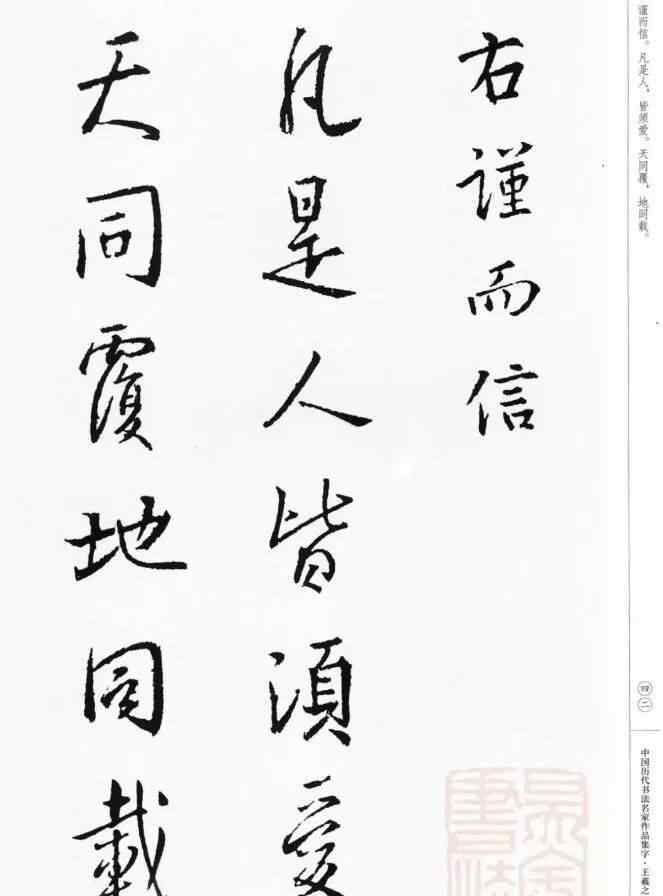 谨而信。凡是人，皆须爱。天同覆，地同载。
四二
中国历代书法名家作品集字·王羲之
右谨而信
凡是人皆須愛
天同覆地同載